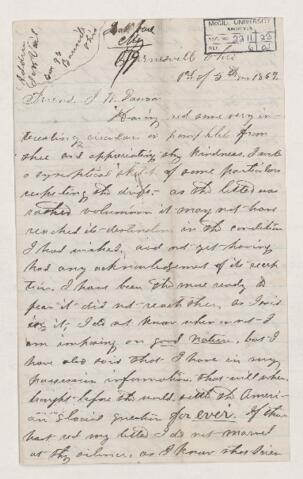 McGILL UNIVERSITY
ARCHIVES
ACC. NO.
REF.
Address
Box 93
Barnesville
Ohio
Barnesville Ohio
of 5th 1869
Friend J. W. Dawson
Having red some very in-
teresting circulars or pamphlets from
thee and appreciating thy kindness, I wrote
a synoptical sketch of some particulars
respecting the drift - as the letter was
rather voluminous it may not have
reached its destination in the condition
I had wished, and not yet having
had any acknowledgement of its recep-
tion, I have been the more ready to
fear it did not reach thee, as I said
in it, I do not know wher or not I
am imposing on good nature, but I
have also said that I have in my
possession information that will when
brought before the world settle the Ameri-
can glacial question for ever. If thou
hast red my letter I do not marvel
at thy silence, as I know that